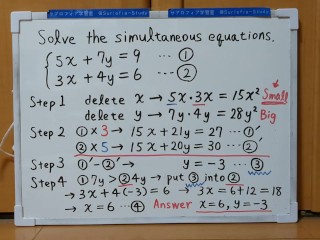 Solve the simultaneous equations.
5x + 7y = 9 ··· ①
3x + 4y = 6 ··· ②
Step 1 delete x → 5x · 3x = 15x² Small
delete y → 7y · 4y = 28y² Big
Step 2 ① × 3 → 15x + 21y = 27 ··· ①′
② × 5 → 15x + 20y = 30 ··· ②′
Step 3 ①′ - ②′ → y = -3 ··· ③
Step 4 ① 7y > ② 4y → put ③ into ②
→ 3x + 4(-3) = 6 → 3x = 6 + 12 = 18
→ x = 6 ··· ④ Answer x = 6, y = -3